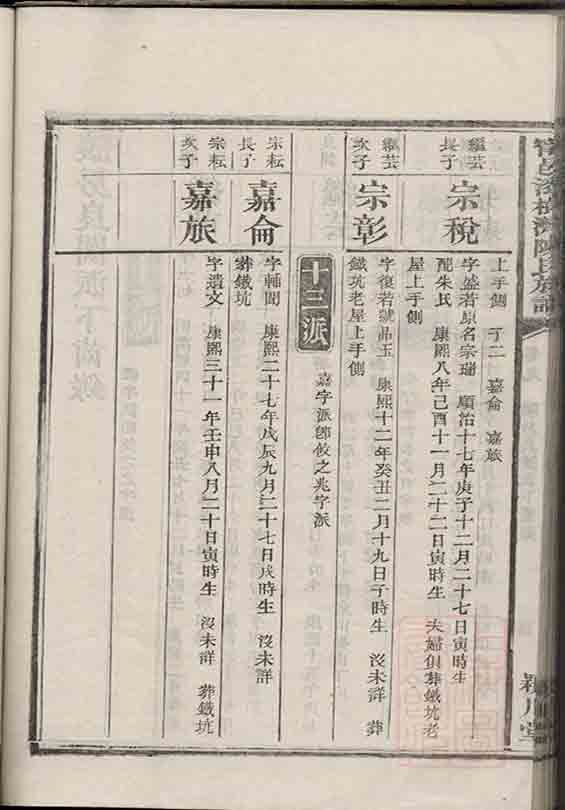 上手側 子二 嘉侖 嘉旅
繼芸長子 宗稅
字盛若原名宗瑞 順治十七年庚子十二月二十七日寅時生
配朱氏 康熙八年己酉十一月二十二日寅時生 夫婦俱葬鐵坑老
屋上手側
繼芸次子 宗彰
字復若號品玉 康熙十二年癸丑二月十九日子時生 沒未詳 葬
鐵坑老屋上手側
十三派 嘉字派卽攸之兆字派
宗耘長子 嘉侖
字輔聞 康熙二十七年戊辰九月二十七日戌時生 沒未詳
葬鐵坑
宗耘次子 嘉旅
字遺文 康熙三十一年壬申八月二十日寅時生 沒未詳 葬鐵坑
潁川堂